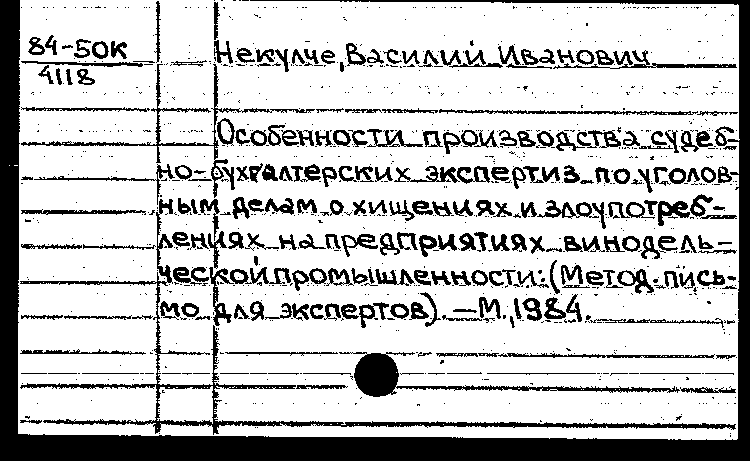 84-БОК
4118
Некулче, Василий Иванович
Особенности производства судеб-
но-бухгалтерских экспертиз по уголов-
ным делам о хищениях и злоупотреб-
лениях на предприятиях винодель-
ческой промышленности: (Метод. пись-
мо для экспертов). — М., 1984.